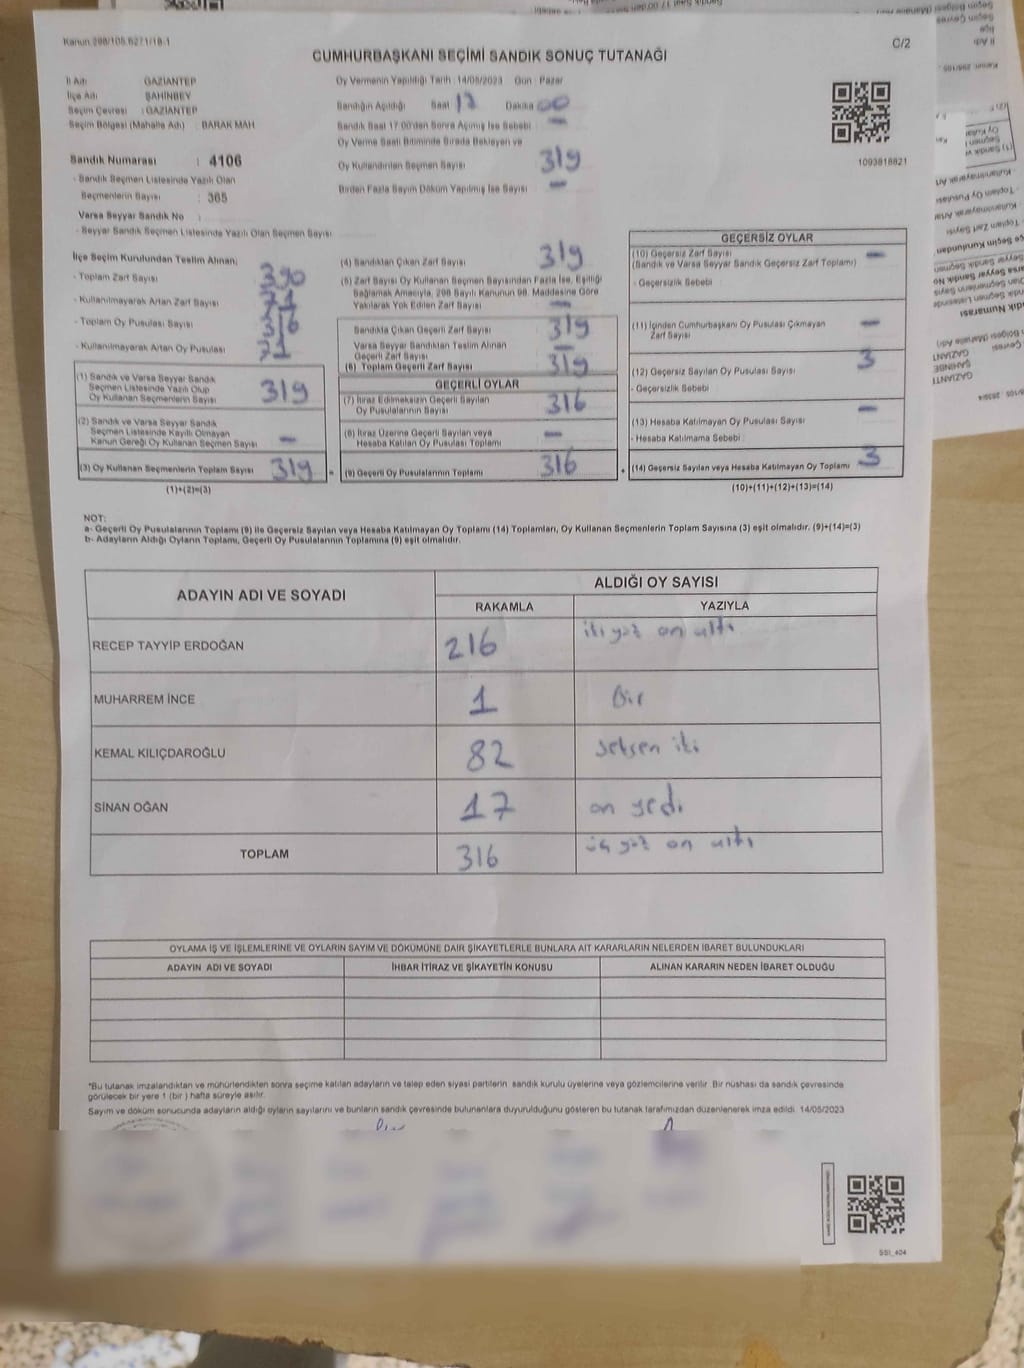 Kanun 298/105.6271/18-1
C/2
CUMHURBAŞKANI SEÇİMİ SANDIK SONUÇ TUTANAĞI
İl Adı : GAZİANTEP
İlçe Adı : ŞAHİNBEY
Seçim Çevresi : GAZİANTEP
Seçim Bölgesi (Mahalle Adı) : BARAK MAH
Sandık Numarası : 4106
- Sandık Seçmen Listesinde Yazılı Olan
Seçmenlerin Sayısı : 365
Varsa Seyyar Sandık No :
- Seyyar Sandık Seçmen Listesinde Yazılı Olan Seçmen Sayısı :
Oy Vermenin Yapıldığı Tarih :14/05/2023 Gün : Pazar
Sandığın Açıldığı Saat 17 Dakika 00
Sandık Saat 17:00'den Sonra Açılmış İse Sebebi : —
Oy Verme Saati Bitiminde Sırada Bekleyen ve
Oy Kullandırılan Seçmen Sayısı 319
Birden Fazla Sayım Döküm Yapılmış İse Sayısı —
1093818821
İlçe Seçim Kurulundan Teslim Alınan;
- Toplam Zarf Sayısı 390
- Kullanılmayarak Artan Zarf Sayısı 71
- Toplam Oy Pusulası Sayısı
- Kullanılmayarak Artan Oy Pusulası 71
(1) Sandık ve Varsa Seyyar Sandık
Seçmen Listesinde Yazılı Olup
Oy Kullanan Seçmenlerin Sayısı 319
(2) Sandık ve Varsa Seyyar Sandık
Seçmen Listesinde Kayıtlı Olmayan
Kanun Gereği Oy Kullanan Seçmen Sayısı —
(3) Oy Kullanan Seçmenlerin Toplam Sayısı 319 =
(1)+(2)=(3)
(4) Sandıktan Çıkan Zarf Sayısı 319
(5) Zarf Sayısı Oy Kullanan Seçmen Sayısından Fazla İse, Eşitliği
Sağlamak Amacıyla, 298 Sayılı Kanunun 98. Maddesine Göre
Yakılarak Yok Edilen Zarf Sayısı —
Sandıkta Çıkan Geçerli Zarf Sayısı 319
Varsa Seyyar Sandıktan Teslim Alınan
Geçerli Zarf Sayısı —
(6) Toplam Geçerli Zarf Sayısı 319
GEÇERLİ OYLAR
(7) İtiraz Edilmeksizin Geçerli Sayılan
Oy Pusulalarının Sayısı 316
(8) İtiraz Üzerine Geçerli Sayılan veya
Hesaba Katılan Oy Pusulası Toplamı —
(9) Geçerli Oy Pusulalarının Toplamı 316 +
GEÇERSİZ OYLAR
(10) Geçersiz Zarf Sayısı —
(Sandık ve Varsa Seyyar Sandık Geçersiz Zarf Toplamı)
- Geçersizlik Sebebi :
(11) İçinden Cumhurbaşkanı Oy Pusulası Çıkmayan
Zarf Sayısı —
(12) Geçersiz Sayılan Oy Pusulası Sayısı 3
- Geçersizlik Sebebi :
(13) Hesaba Katılmayan Oy Pusulası Sayısı —
- Hesaba Katılmama Sebebi :
(14) Geçersiz Sayılan veya Hesaba Katılmayan Oy Toplamı 3
(10)+(11)+(12)+(13)=(14)
NOT:
a- Geçerli Oy Pusulalarının Toplamı (9) ile Geçersiz Sayılan veya Hesaba Katılmayan Oy Toplamı (14) Toplamları, Oy Kullanan Seçmenlerin Toplam Sayısına (3) eşit olmalıdır. (9)+(14)=(3)
b- Adayların Aldığı Oyların Toplamı, Geçerli Oy Pusulalarının Toplamına (9) eşit olmalıdır.
ADAYIN ADI VE SOYADI ALDIĞI OY SAYISI
RAKAMLA YAZIYLA
RECEP TAYYİP ERDOĞAN 216 iki yüz on altı
MUHARREM İNCE 1 Bir
KEMAL KILIÇDAROĞLU 82 seksen iki
SİNAN OĞAN 17 on yedi
TOPLAM 316 üç yüz on altı
OYLAMA İŞ VE İŞLEMLERİNE VE OYLARIN SAYIM VE DÖKÜMÜNE DAİR ŞİKAYETLERLE BUNLARA AİT KARARLARIN NELERDEN İBARET BULUNDUKLARI
ADAYIN ADI VE SOYADI İHBAR İTİRAZ VE ŞİKAYETİN KONUSU ALINAN KARARIN NEDEN İBARET OLDUĞU
*Bu tutanak imzalandıktan ve mühürlendikten sonra seçime katılan adayların ve talep eden siyasi partilerin sandık kurulu üyelerine veya gözlemcilerine verilir. Bir nüshası da sandık çevresinde
görülecek bir yere 1 (bir ) hafta süreyle asılır.
Sayım ve döküm sonucunda adayların aldığı oyların sayılarını ve bunların sandık çevresinde bulunanlara duyurulduğunu gösteren bu tutanak tarafımızdan düzenlenerek imza edildi. 14/05/2023
SSI_404